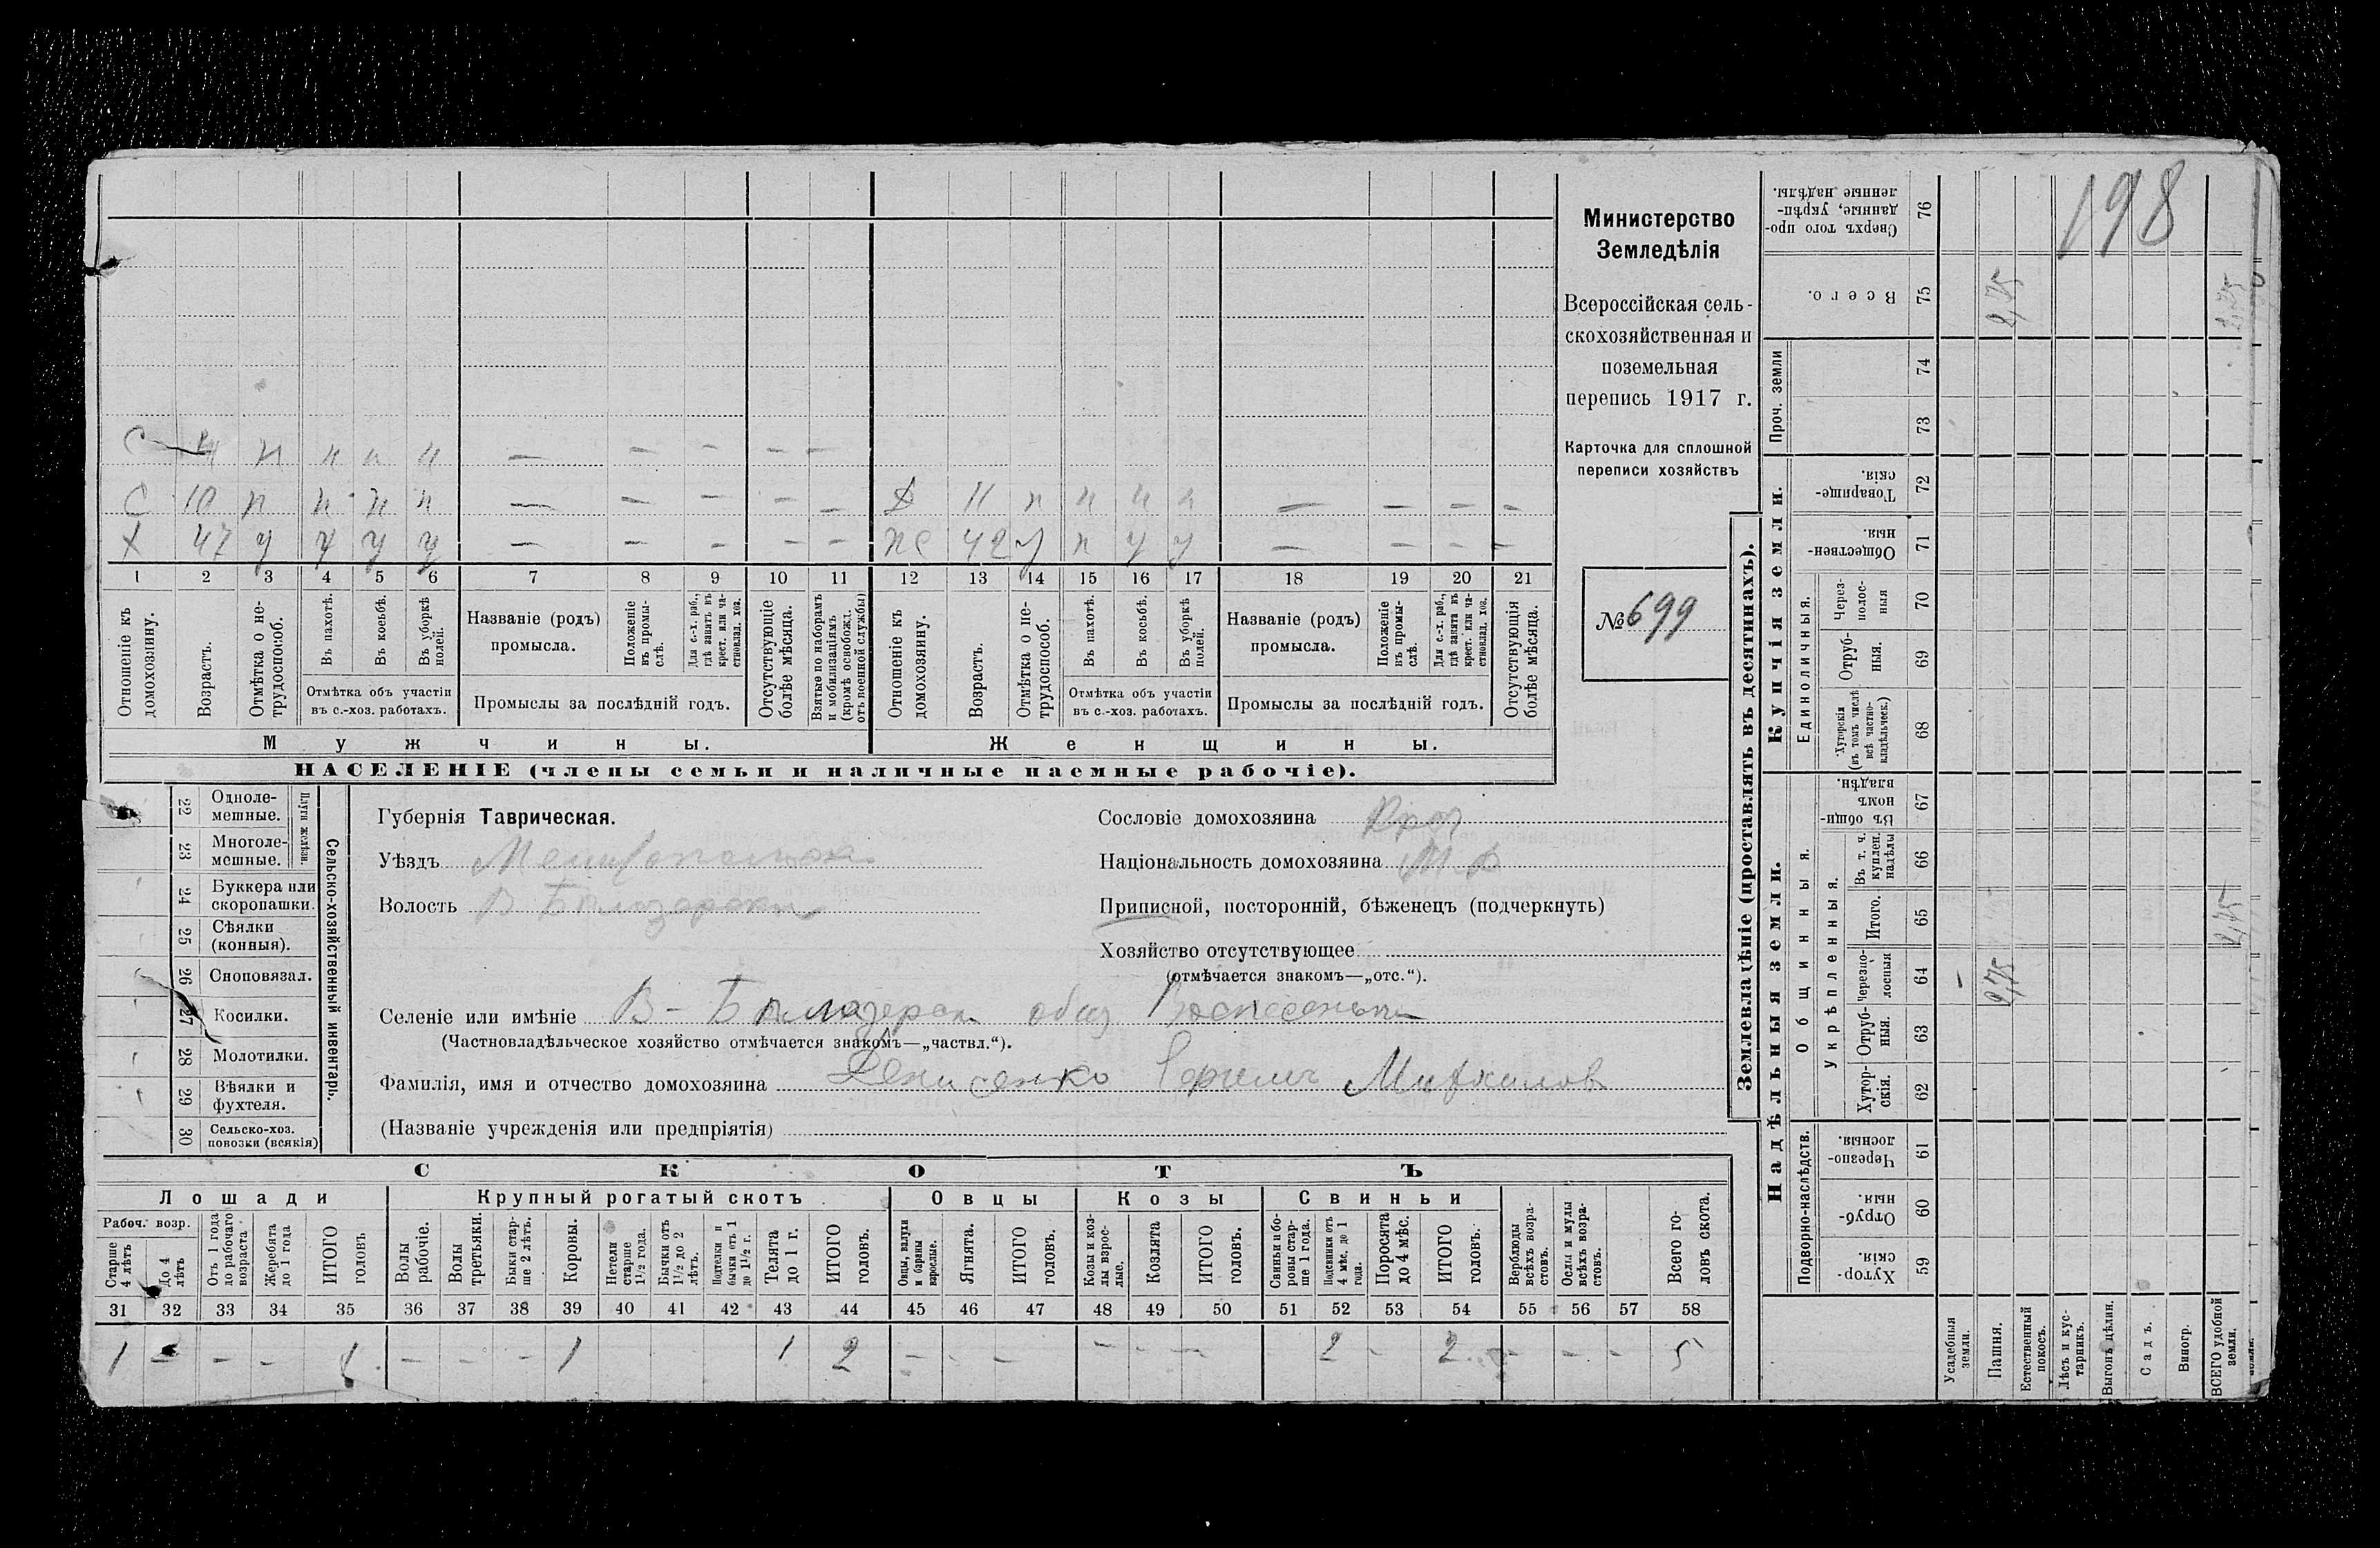 198
Министерство
Земледѣлія
Всероссійская сель-
скохозяйственная и
поземельная
перепись 1917 г.
Карточка для сплошной
переписи хозяйствъ
№ 699
С 4 н н н н — — — — —
С 10 н н н н — — — — — Д 11 н н н н — — — —
Х 47 у у у у — — — — — ж 42 у н у у — — — —
1 2 3 4 5 6 7 8 9 10 11 12 13 14 15 16 17 18 19 20 21
Отношеніе къ домохозяину.
Возрастъ.
Отмѣтка о не-трудоспособ.
Въ пахотѣ.
Въ косьбѣ.
Въ уборкѣ полей.
Отмѣтка объ участіи
въ с.-хоз. работахъ.
Названіе (родъ)
промысла.
Положеніе въ промы-слѣ.
Для с.-х. раб., гдѣ занятъ въ крест. или ча-стновлад. хоз.
Промыслы за послѣдній годъ.
Отсутствующіе болѣе мѣсяца.
Взятые по наборамъ и мобилизаціямъ (кромѣ освобожд. отъ военной службы)
Отношеніе къ домохозяину.
Возрастъ.
Отмѣтка о не-трудоспособ.
Въ пахотѣ.
Въ косьбѣ.
Въ уборкѣ полей.
Отмѣтка объ участіи
въ с.-хоз. работахъ.
Названіе (родъ)
промысла.
Положеніе въ промы-слѣ.
Для с.-х. раб., гдѣ занята въ крест. или ча-стновлад. хоз.
Промыслы за послѣдній годъ.
Отсутствующія болѣе мѣсяца.
Мужчины.
Женщины.
НАСЕЛЕНІЕ (члены семьи и наличные наемные рабочіе).
Сельско-хозяйственный инвентарь.
Плуги желѣзн.
22 Одноле-мешные.
23 Многоле-мешные.
24 Буккера или скоропашки.
25 Сѣялки (конныя).
26 Сноповязал.
27 Косилки.
28 Молотилки.
29 Вѣялки и фухтеля.
30 Сельско-хоз. повозки (всякія)
Губернія Таврическая.
Уѣздъ Мелитопольск.
Волость В Бѣлозерская
Сословіе домохозяина Кр
Національность домохозяина М Р
Приписной, посторонній, бѣженецъ (подчеркнуть)
Хозяйство отсутствующее
(отмѣчается знакомъ—„отс.“).
Селеніе или имѣніе В-Бѣлозерск общ
(Частновладѣльческое хозяйство отмѣчается знакомъ—„частвл.“).
Фамилія, имя и отчество домохозяина Денисенко Михаилов
(Названіе учрежденія или предпріятія)
СКОТЪ
Лошади
Крупный рогатый скотъ
Овцы
Козы
Свиньи
Рабоч. возр.
Старше 4 лѣтъ
До 4 лѣтъ
Отъ 1 года до рабочаго возраста
Жеребята до 1 года
ИТОГО головъ
Волы рабочіе.
Волы третьяки.
Быки стар-ше 2 лѣтъ.
Коровы.
Нетели старше 1½ года.
Бычки отъ 1½ до 2 лѣтъ.
Подтелки и бычки отъ 1 до 1½ г.
Телята до 1 г.
ИТОГО головъ.
Овцы, валухи и бараны взрослые.
Ягнята.
ИТОГО головъ.
Козы и коз-лы взрос-лые.
Козлята
ИТОГО головъ.
Свиньи и бо-ровы стар-ше 1 года.
Подсвинки отъ 4 мѣс. до 1 года.
Поросята до 4 мѣс.
ИТОГО головъ.
Верблюды всѣхъ возра-стовъ.
Ослы и мулы всѣхъ возра-стовъ.
Всего го-ловъ скота.
31 32 33 34 35 36 37 38 39 40 41 42 43 44 45 46 47 48 49 50 51 52 53 54 55 56 57 58
1 — — — 1 — — — 1 1 2 — — — — — — 2 — 2 — — — 5
Землевладѣніе (проставлять въ десятинахъ).
Надѣльныя земли.
Купчія земли.
Проч. земли
Подворно-наслѣдств.
Общинныя.
Укрѣпленныя.
Единоличныя.
59 Хутор-скія.
60 Отруб-ныя.
61 Черезпо-лосныя.
62 Хутор-скія.
63 Отруб-ныя.
64 Черезпо-лосныя
65 Итого.
66 Въ т. ч. куплен. надѣлы
67 Въ общи-номъ владѣн.
68 Хуторскія (въ томъ числѣ всѣ частно-владѣльческ.)
69 Отруб-ныя.
70 Через-полос-ныя
71 Обществен-ныя.
72 Товарище-скія.
73
74
75 Всего.
76 Сверхъ того про-данные, укрѣп-ленные надѣлы.
Усадебныя земли.
Пашня.
Естественный покосъ.
Лѣсъ и кус-тарникъ.
Выгонъ цѣлин.
Садъ.
Виногр.
ВСЕГО удобной земли.
2,75
2,75
2,75
2,75